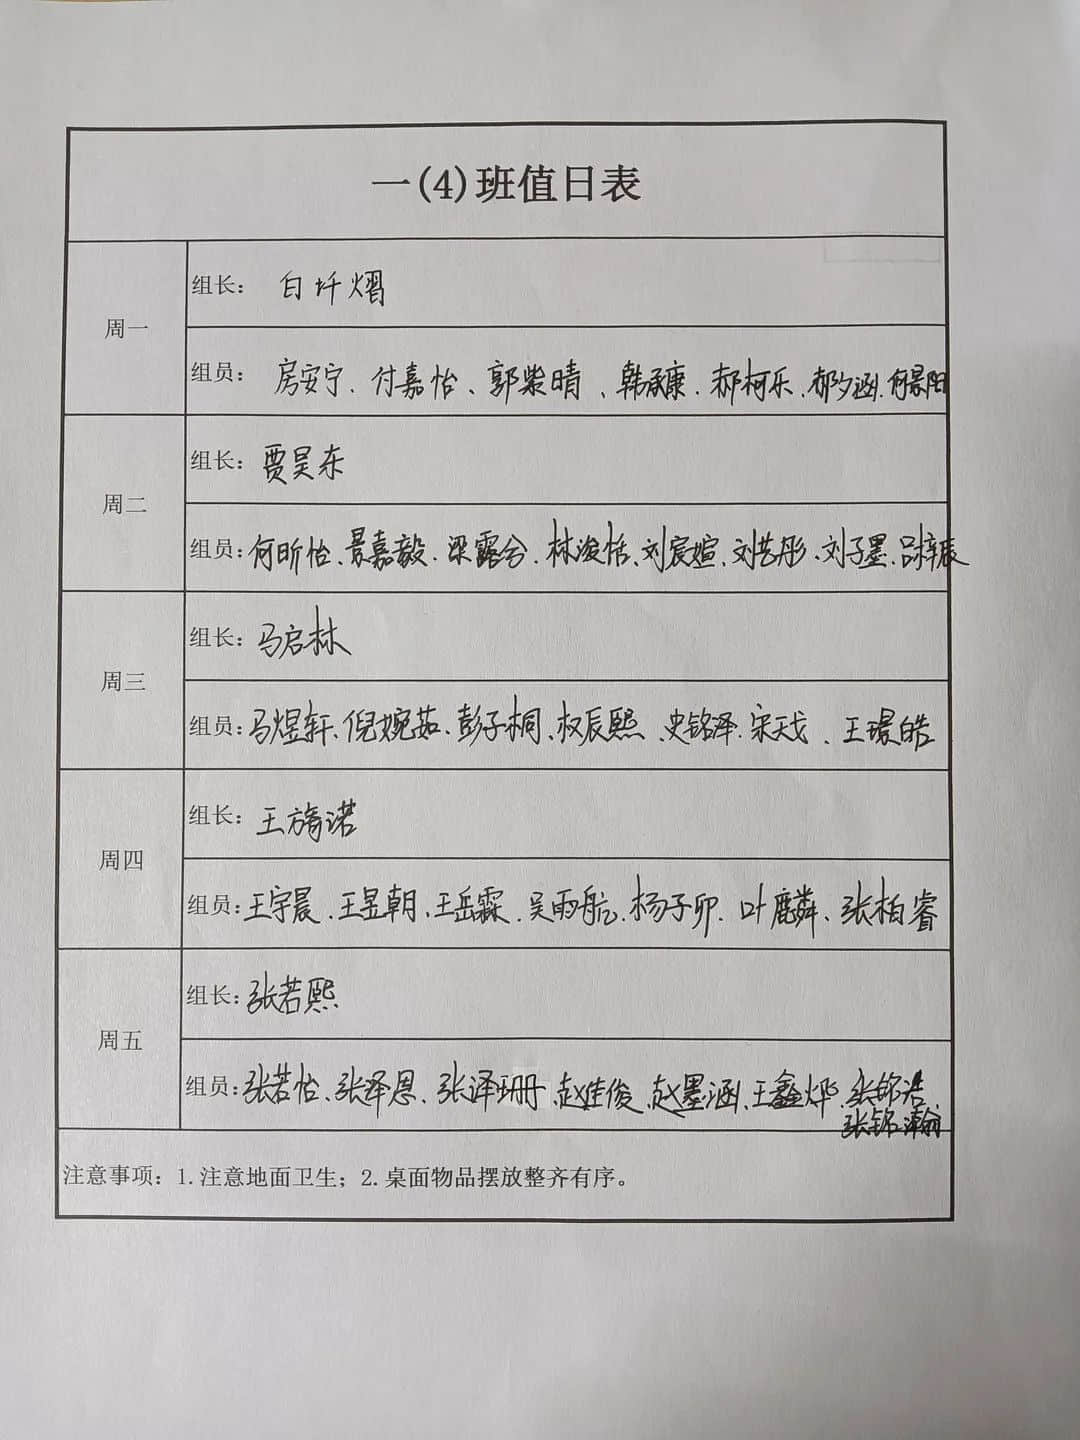 一(4)班值日表
周一
组长： 白圩熠
组员： 房安宁、付嘉怡、郭紫晴、韩承康、郝柯乐、郝夕涵、何景阳
周二
组长： 贾昊东
组员：何昕怡、景嘉毅、梁露兮、林浚恬、刘宸媗、刘艺彤、刘子墨、吕梓辰
周三
组长： 马启林
组员：马煜轩、倪婉茹、彭子桐、权辰熙、史铭泽、宋天戈、王璟皓
周四
组长： 王旖诺
组员：王宇晨、王昱朝、王岳霖、吴雨航、杨子卯、叶麟、张柏睿
周五
组长：张若熙
组员：张若怡、张泽恩、张译珊、赵佳俊、赵墨涵、王鑫烨、张铭浩、
张铭瀚
注意事项：1.注意地面卫生；2.桌面物品摆放整齐有序。